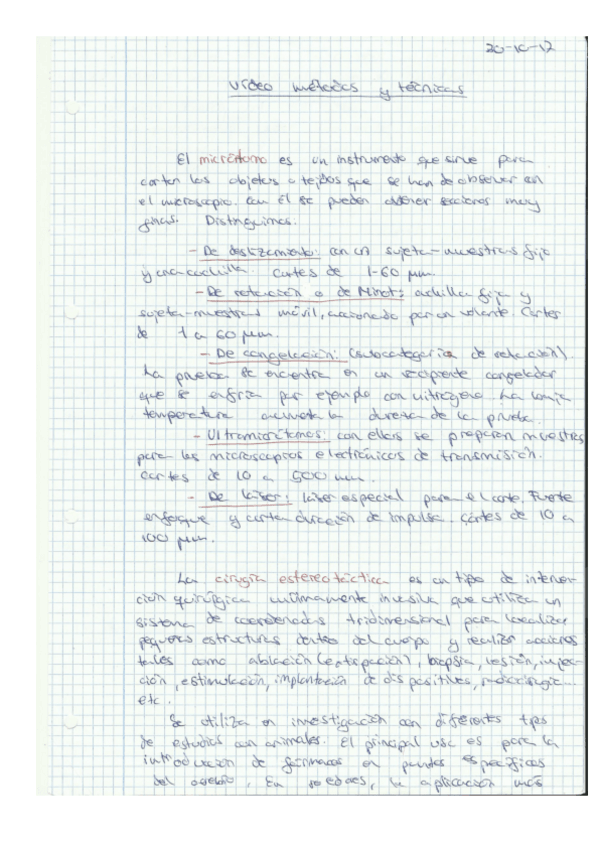 20-10-12
Video métodos y técnicas
El micrótomo es un instrumento que sirve para
cortar los objetos o tejidos que se han de observar en
el microscopio. Con él se pueden obtener secciones muy
finas. Distinguimos:
- De deslizamiento: con un sujeta-muestras fijo
y una cuchilla. Cortes de 1-60 µm.
- De rotación o de Minot: cuchilla fija y
sujeta-muestras móvil, accionado por un volante. Cortes
de 1 a 60 µm.
- De congelación: (subcategoría de rotación).
La prueba se encuentra en un recipiente congelador
que se enfría por ejemplo con nitrógeno. La
temperatura aumenta la dureza de la prueba.
- Ultramicrótomos: con ellos se preparan muestras
para los microscopios electrónicos de transmisión.
Cortes de 10 a 500 nm.
- De láser: láser especial para el corte. Fuerte
enfoque y corta duración de impulso. Cortes de 10 a
100 µm.
La cirugía estereotáctica es un tipo de interven-
ción quirúrgica mínimamente invasiva que utiliza un
sistema de coordenadas tridimensional para localizar
pequeñas estructuras dentro del cuerpo y realizar acciones
tales como ablación (extirpación), biopsia, lesión, inyec-
ción, estimulación, implantación de dispositivos, radiocirugía...
etc.
Se utiliza en investigación con diferentes tipos
de estudios con animales. El principal uso es para la
introducción de fármacos en puntos específicos
del cerebro. En roedores, la aplicación más